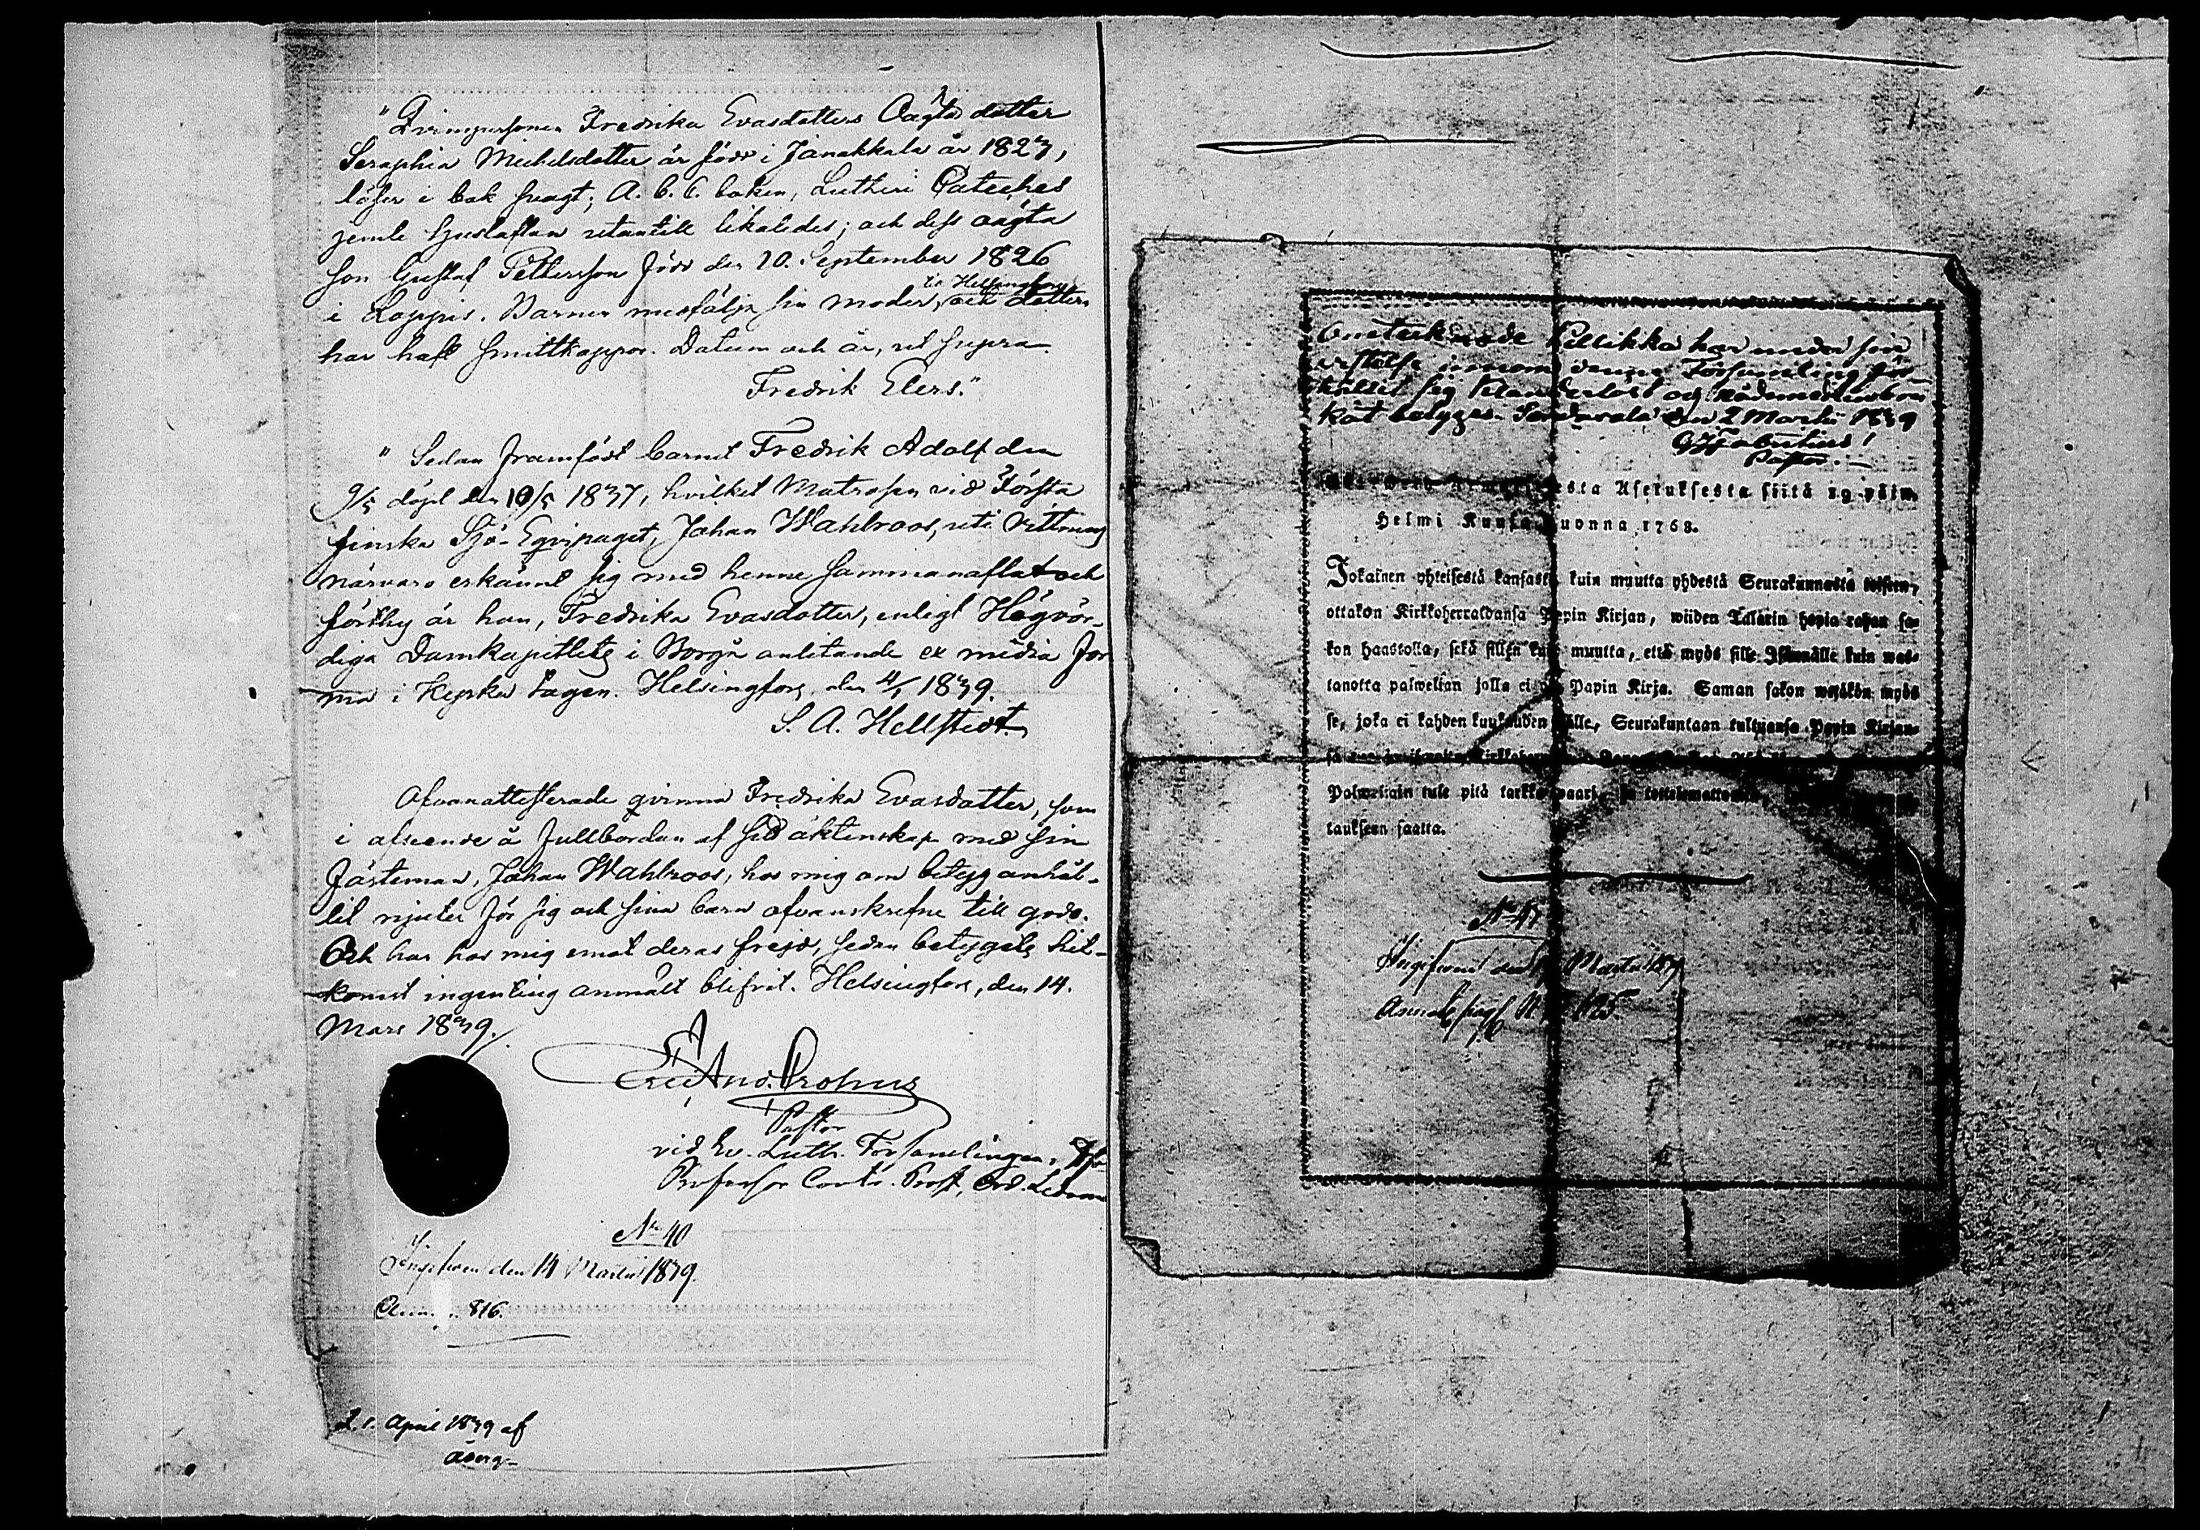 "Qvinspersonen Fredrika Evasdotters Oägta dotter
Seraphia Michelsdotter är född i Janakkala år 1823,
läser i bok svagt; A. b. C. boken, Lutheri Cateches
jemte Hustaflan utantill likaledes; och dess oägta
son Gustaf Pettersson född den 20. September 1826
i Loppis. Barnen medfölja sin moder, och dottern
till Helsingfors
har haft smittkoppor. Datum och år, ut supra.
Fredrik Elers."
"Sedan framfödt barnet Fredrik Adolf den
9/5 döpt den 10/5 1837, hvilket Matrosen vid Första
finska Sjö-Eqvipaget, Johan Wahlroos, uti Vittnens
närvaro erkännt sig med henne sammanaflat och
förthy är hon, Fredrika Evasdotter, enligt Högvör-
diga Domkapitlets i Borgå anlitande ex media for
ma i kyrka tagen. Helsingfors, den 4/1 1839.
S. A. Hellstedt.
Ofvanattesterade qvinna Fredrika Evasdotter, som
i afseende å fullbordan af sid äktenskap med sin
fästeman, Johan Wahlroos, hos mig om betyg anhål-
lit njuter för sig och sina barn ofvanskrefne till godo.
Och har hos mig emot deras frejd, sedan betygets hit-
komst ingenting anmält blifvit. Helsingfors, den 14.
Mars 1839.
Pastor
vid Ev. Luth. Församlingen,
Professor Contr. Prost, Ord. Ledam
No 40
Ingifven den 14 Martii 1839.
816.
d. 1. April 1839 af
Åberg
Omtecknade Pellikka har under sin
vistelse innom denna Församling för-
hållit sig klanderlöst och
kåt betygar. Sordavala den 2 Martii 1839
Pastor.
Asetuksesta siitä 19 päiw.
Helmi Kuusa Wuonna 1768.
Jokainen yhteisestä kansasta kuin muutta yhdestä Seurakunnasta toiseen,
ottakon Kirkkoherraldansa Papin Kirjan, wiiden Talarin hopia rahan sa-
kon haastolla, sekä sillen kuin muutta, että myös sille Isännälle kuin was-
tanotta palwelian jolla ei ole Papin Kirja. Saman sakon wetäkön myös
se, joka ei kahden kuukauden sälle, Seurakuntaan tultuansa Papin Kirjan-
Palweliain tule pitä tarkka waari,
taukseen saatta.
No 47
Ingifven den Martii 1839